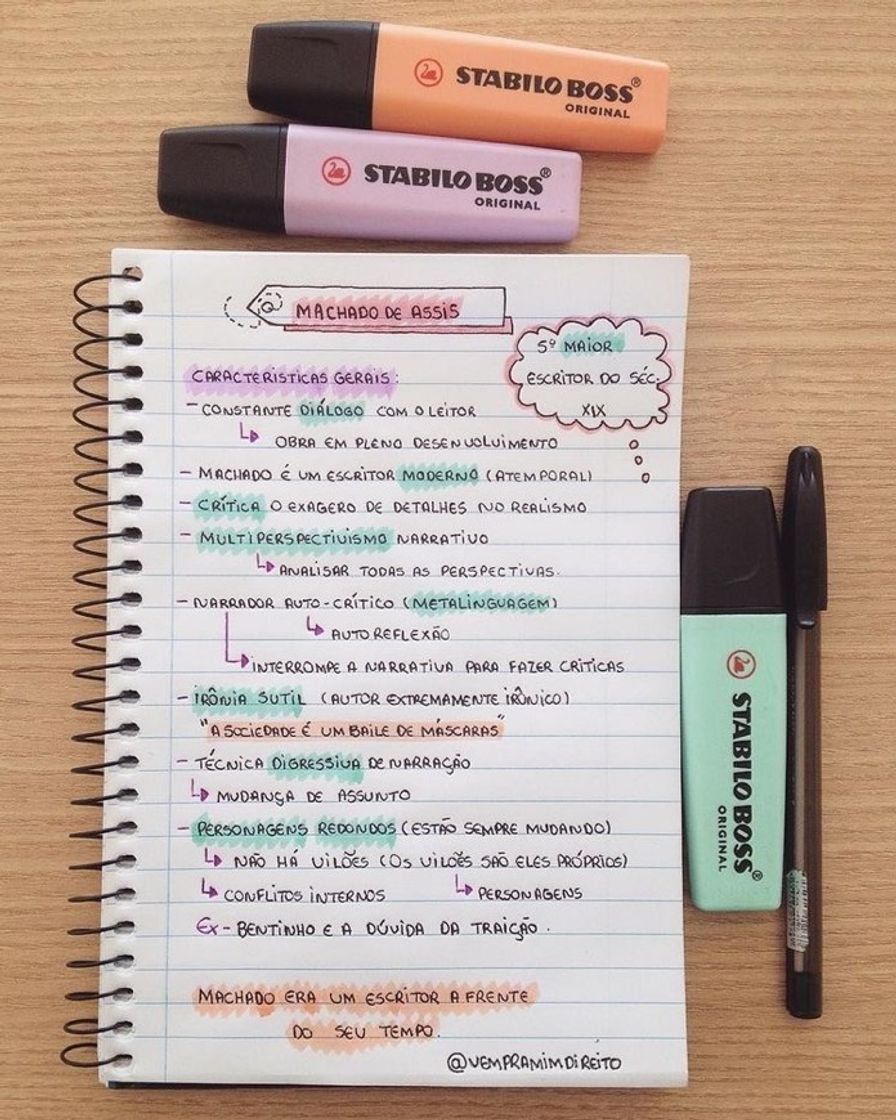 STABILO BOSS®
ORIGINAL
STABILO BOSS®
ORIGINAL
MACHADO DE ASSIS
5º MAIOR
ESCRITOR DO SÉC.
XIX
CARACTERÍSTICAS GERAIS:
- CONSTANTE DIÁLOGO COM O LEITOR
OBRA EM PLENO DESENVOLVIMENTO
- MACHADO É UM ESCRITOR MODERNO (ATEMPORAL)
- CRÍTICA O EXAGERO DE DETALHES NO REALISMO
- MULTIPERSPECTIVISMO NARRATIVO
ANALISAR TODAS AS PERSPECTIVAS.
- NARRADOR AUTO-CRÍTICO (METALINGUAGEM)
AUTO REFLEXÃO
INTERROMPE A NARRATIVA PARA FAZER CRÍTICAS
- IRÔNIA SUTIL (AUTOR EXTREMAMENTE IRÔNICO)
"A SOCIEDADE É UM BAILE DE MÁSCARAS"
- TÉCNICA DIGRESSIVA DE NARRAÇÃO
MUDANÇA DE ASSUNTO
- PERSONAGENS REDONDOS (ESTÃO SEMPRE MUDANDO)
NÃO HÁ VILÕES (OS VILÕES SÃO ELES PRÓPRIOS)
CONFLITOS INTERNOS PERSONAGENS
Ex- BENTINHO E A DÚVIDA DA TRAIÇÃO.
MACHADO ERA UM ESCRITOR A FRENTE
DO SEU TEMPO.
@VEMPRAMIMDIREITO
STABILO BOSS®
ORIGINAL